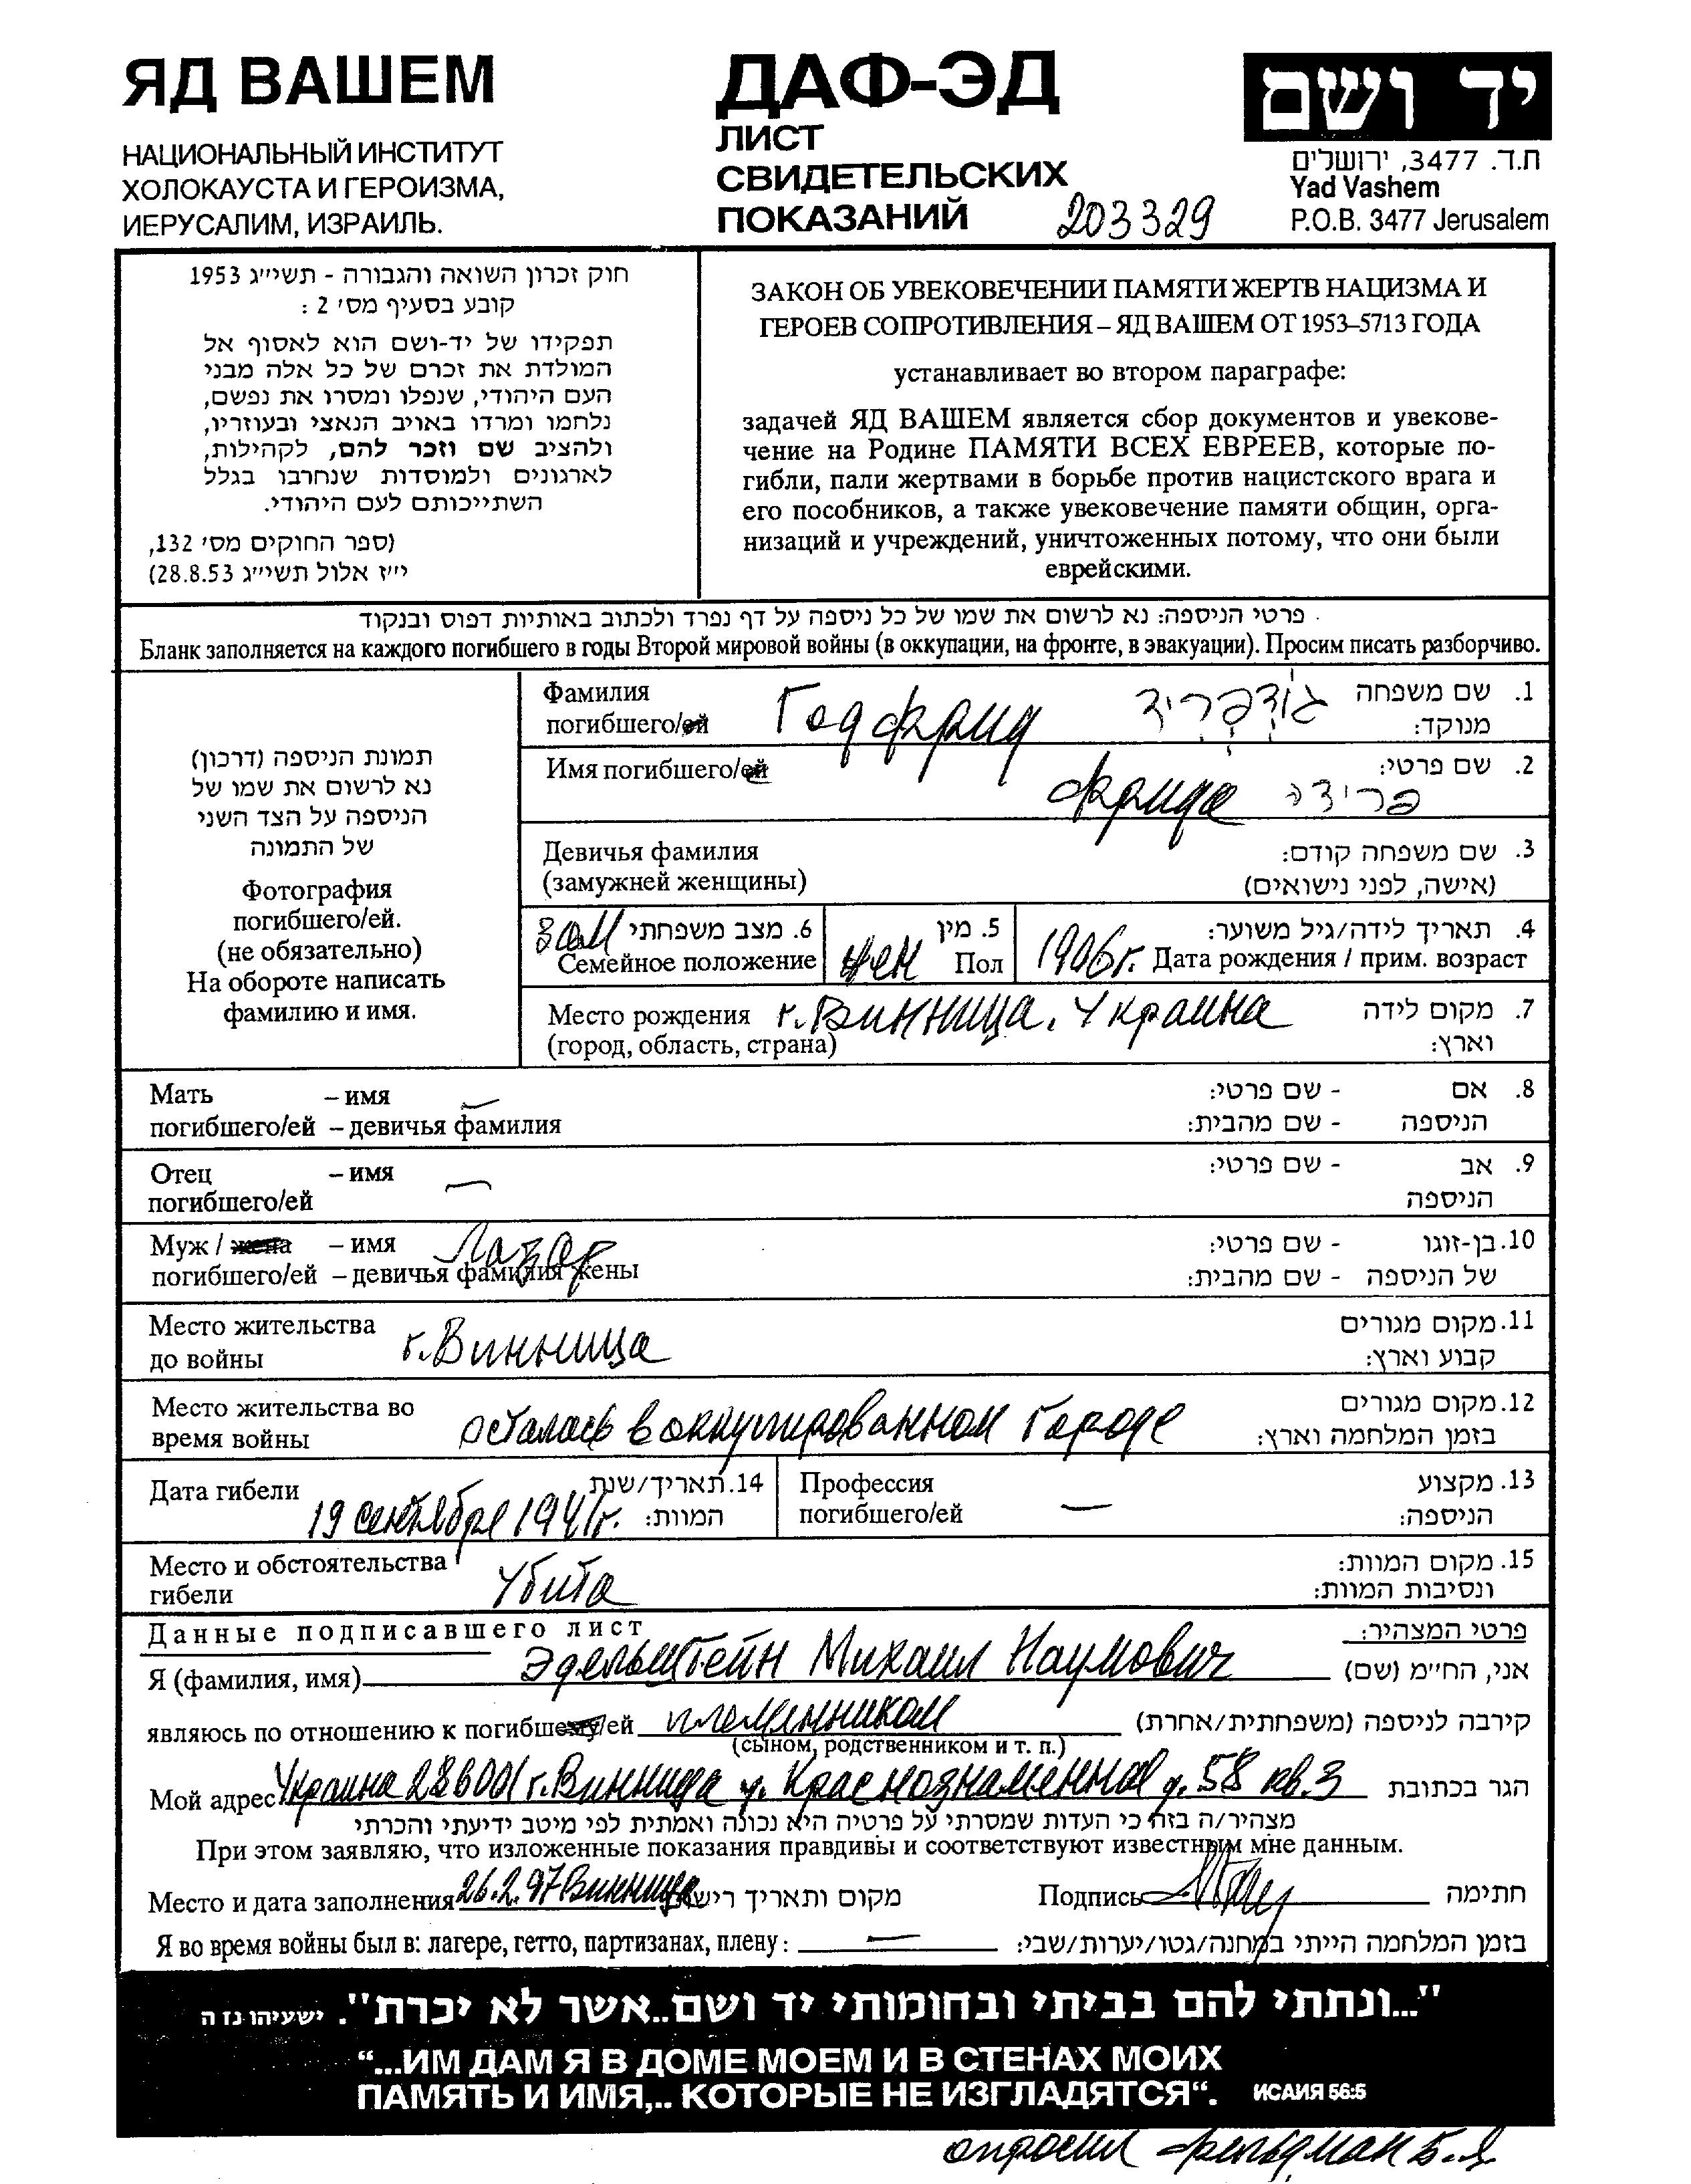 ЯД ВАШЕМ
НАЦИОНАЛЬНЫЙ ИНСТИТУТ
ХОЛОКАУСТА И ГЕРОИЗМА,
ИЕРУСАЛИМ, ИЗРАИЛЬ.
ДАФ-ЭД
ЛИСТ
СВИДЕТЕЛЬСКИХ
ПОКАЗАНИЙ 203329
יד ושם
ת.ד. 3477, ירושלים
Yad Vashem
P.O.B. 3477 Jerusalem
חוק זכרון השואה והגבורה - תשי״ג 1953
קובע בסעיף מס׳ 2 :
תפקידו של יד-ושם הוא לאסוף אל
המולדת את זכרם של כל אלה מבני
העם היהודי, שנפלו ומסרו את נפשם,
נלחמו ומרדו באויב הנאצי ובעוזריו,
ולהציב שם וזכר להם, לקהילות,
לארגונים ולמוסדות שנחרבו בגלל
השתייכותם לעם היהודי.
(ספר החוקים מס׳ 132,
י״ז אלול תשי״ג 28.8.53)
ЗАКОН ОБ УВЕКОВЕЧЕНИИ ПАМЯТИ ЖЕРТВ НАЦИЗМА И
ГЕРОЕВ СОПРОТИВЛЕНИЯ – ЯД ВАШЕМ ОТ 1953–5713 ГОДА
устанавливает во втором параграфе:
задачей ЯД ВАШЕМ является сбор документов и увекове-
чение на Родине ПАМЯТИ ВСЕХ ЕВРЕЕВ, которые по-
гибли, пали жертвами в борьбе против нацистского врага и
его пособников, а также увековечение памяти общин, орга-
низаций и учреждений, уничтоженных потому, что они были
еврейскими.
פרטי הניספה: נא לרשום את שמו של כל ניספה על דף נפרד ולכתוב באותיות דפוס ובנקוד
Бланк заполняется на каждого погибшего в годы Второй мировой войны (в оккупации, на фронте, в эвакуации). Просим писать разборчиво.
תמונת הניספה (דרכון)
נא לרשום את שמו של
הניספה על הצד השני
של התמונה
Фотография
погибшего/ей.
(не обязательно)
На обороте написать
фамилию и имя.
Фамилия Годфрид גוֹדְפְרִיד 1. שם משפחה
погибшего/ей מנוקד:
Имя погибшего/ей Фрида פרידה 2. שם פרטי:
Девичья фамилия 3. שם משפחה קודם:
(замужней женщины) (אישה, לפני נישואים)
зам 6. מצב משפחתי 5. מין 4. תאריך לידה/גיל משוער:
Семейное положение жен Пол 1906г. Дата рождения / прим. возраст
Место рождения г. Винница. Украина 7. מקום לידה
(город, область, страна) וארץ:
Мать – имя – 8. אם - שם פרטי:
погибшего/ей – девичья фамилия הניספה - שם מהבית:
Отец – имя – 9. אב - שם פרטי:
погибшего/ей הניספה
Муж / жена – имя Лазар 10. בן-זוגו - שם פרטי:
погибшего/ей – девичья фамилия жены של הניספה - שם מהבית:
Место жительства г. Винница 11. מקום מגורים
до войны קבוע וארץ:
Место жительства во осталась в оккупированном городе 12. מקום מגורים
время войны בזמן המלחמה וארץ:
Дата гибели 14. תאריך/שנת Профессия 13. מקצוע
19 сентября 1941г. המוות: погибшего/ей – הניספה:
Место и обстоятельства Убита 15. מקום המוות:
гибели ונסיבות המוות:
Данные подписавшего лист פרטי המצהיר:
Я (фамилия, имя) Эдельштейн Михаил Наумович אני, הח״מ (שם)
являюсь по отношению к погибшему/ей племянником קירבה לניספה (משפחתית/אחרת)
(сыном, родственником и т. п.)
Мой адрес Украина 286001 г. Винница у. Краснознаменная д. 58 кв. 3 הגר בכתובת
מצהיר/ה בזה כי העדות שמסרתי על פרטיה היא נכונה ואמתית לפי מיטב ידיעתי והכרתי
При этом заявляю, что изложенные показания правдивы и соответствуют известным мне данным.
Место и дата заполнения 26.2.97 Винница מקום ותאריך רישום Подпись חתימה
Я во время войны был в: лагере, гетто, партизанах, плену: – בזמן המלחמה הייתי במחנה/גטו/יערות/שבי:
"...ונתתי להם בביתי ובחומותי יד ושם..אשר לא יכרת". ישעיהו נז ה
“...ИМ ДАМ Я В ДОМЕ МОЕМ И В СТЕНАХ МОИХ
ПАМЯТЬ И ИМЯ,.. КОТОРЫЕ НЕ ИЗГЛАДЯТСЯ“. ИСАИЯ 56:5
опросил Фельдман Б.Я.